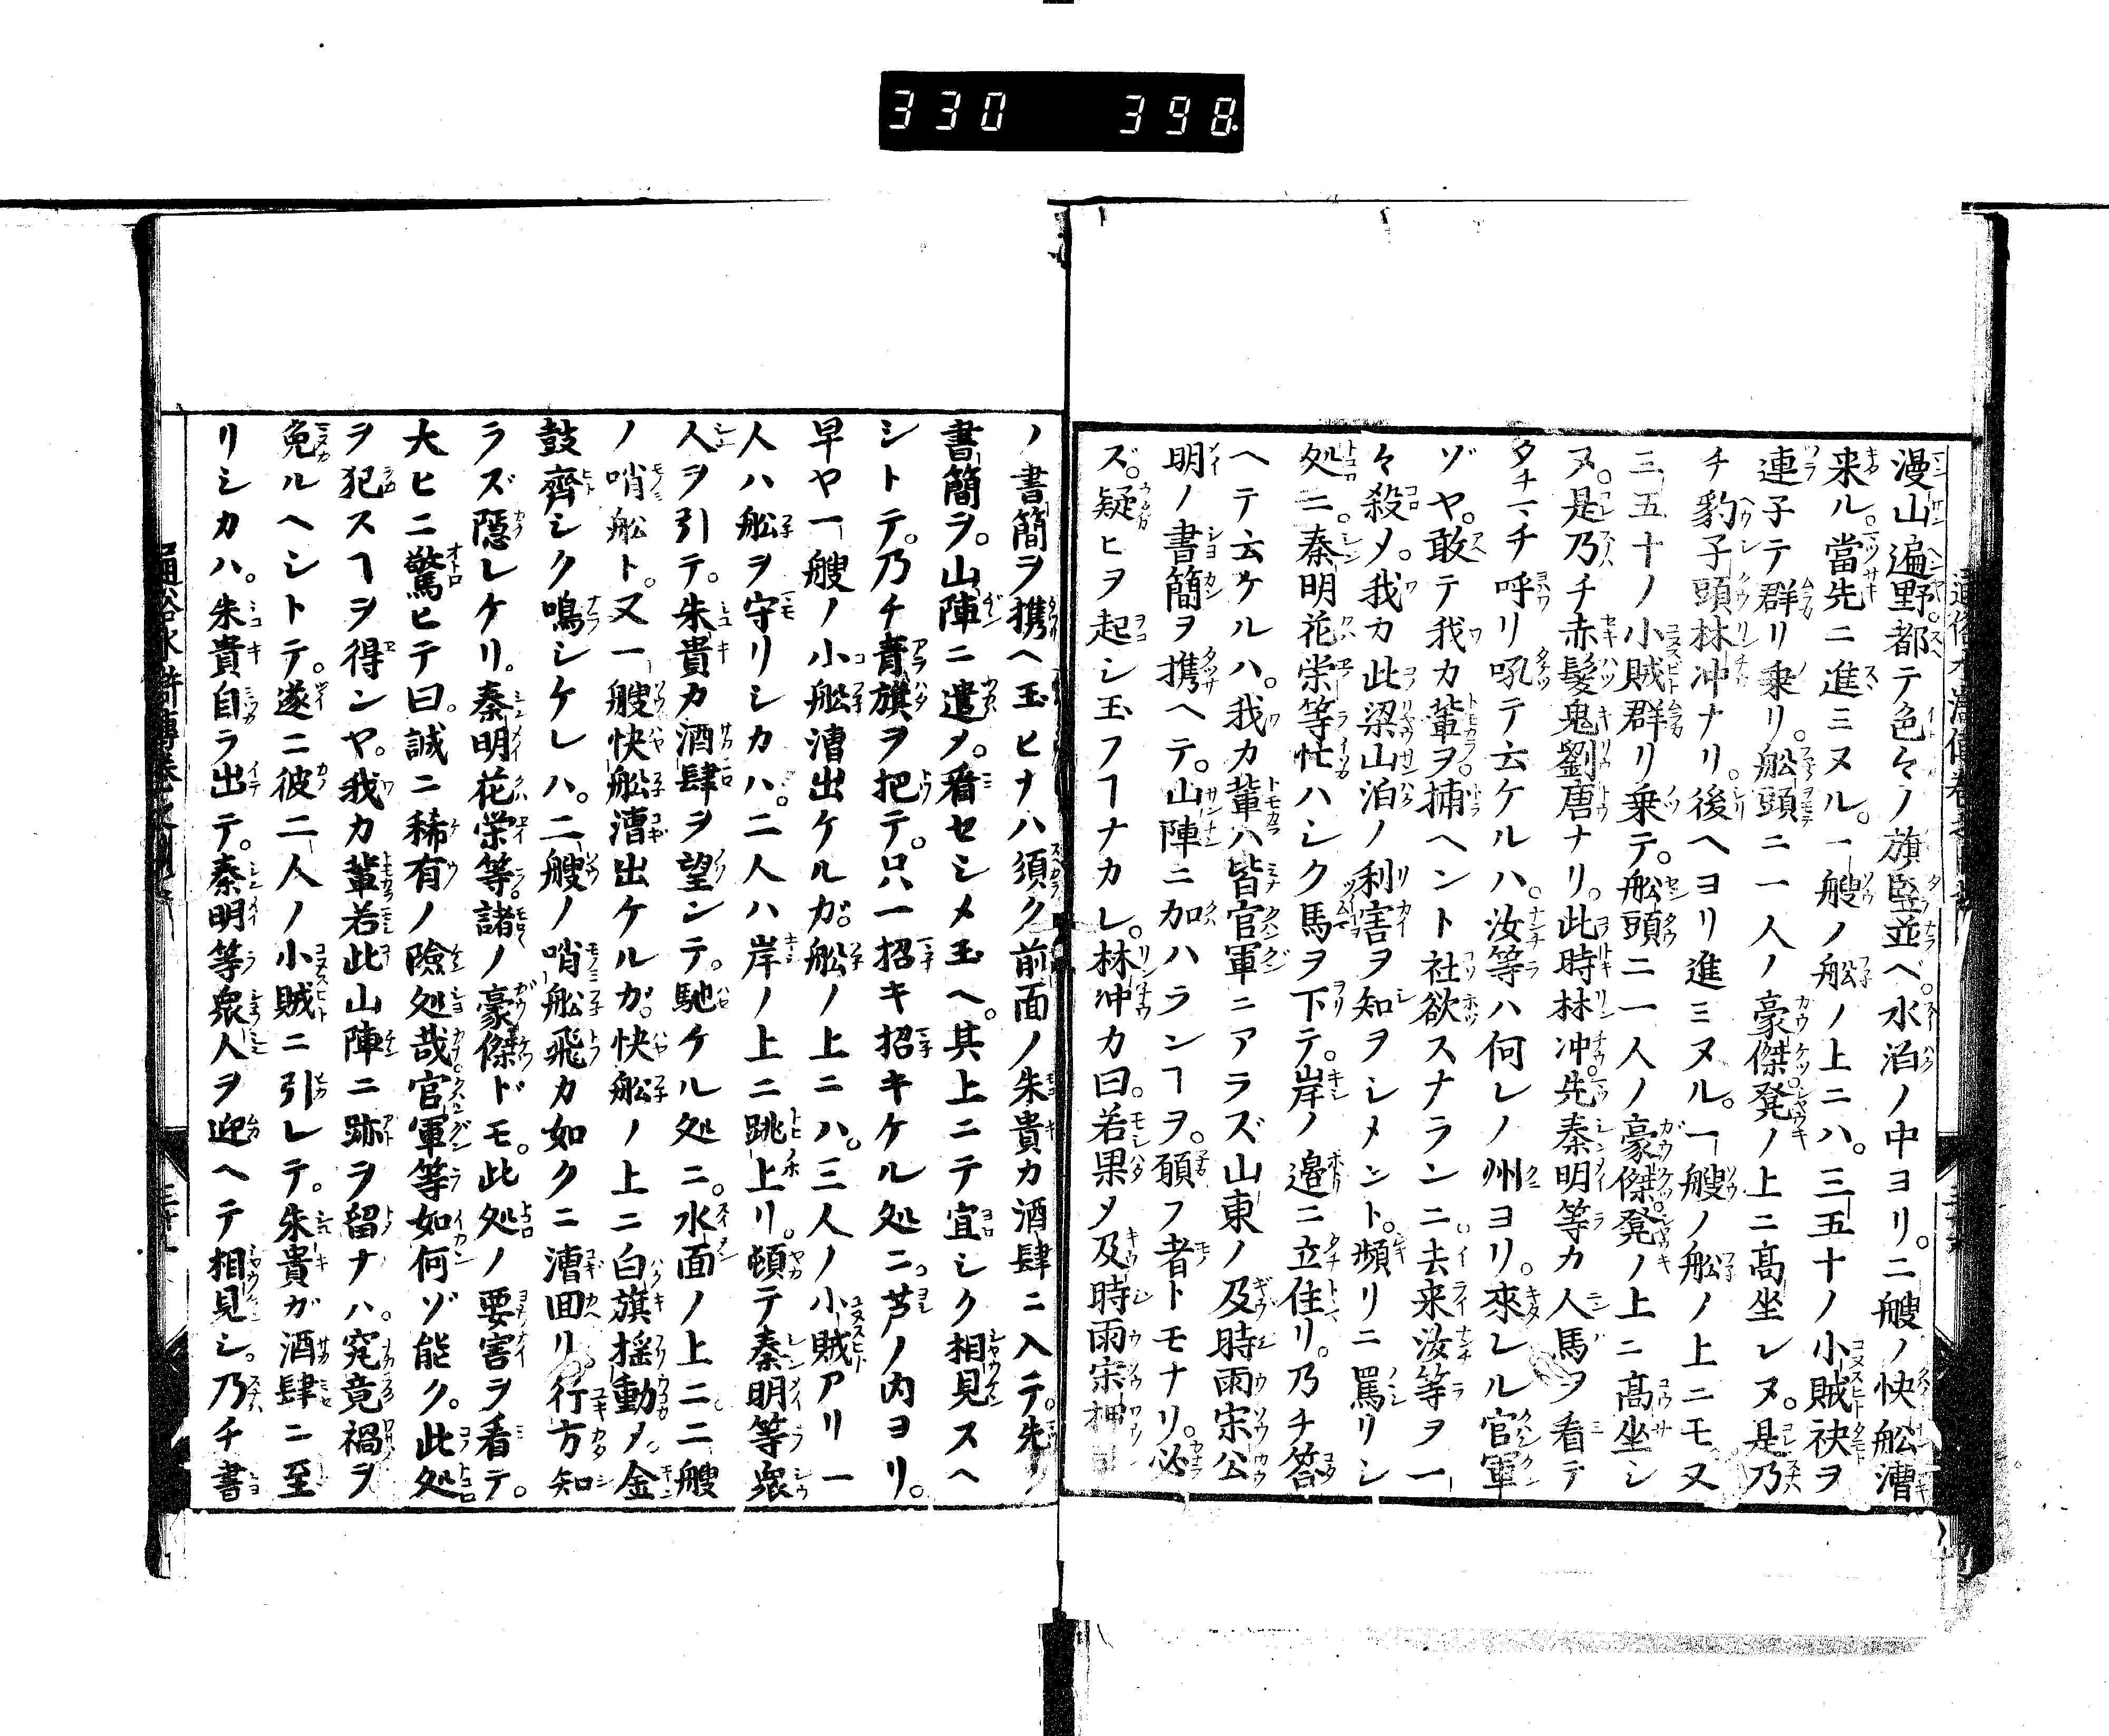 330 398
漫山遍野。都テ色々ノ旗竪並ベ。水泊ノ中ヨリ。二艘ノ快舩漕
来ル。當先ニ進ミヌル。一艘ノ舩ノ上ニハ。三五十ノ小賊袂ヲ
連子テ群リ乗リ。舩頭ニ一人ノ豪傑。凳ノ上ニ高坐レヌ。是乃
チ豹子頭林冲ナリ。後ヘヨリ進ミヌル。一艘ノ舩ノ上ニモ。又
三五十ノ小賊群リ乗テ。舩頭ニ一人ノ豪傑。凳ノ上ニ高坐シ
ヌ。是乃チ赤髪鬼劉唐ナリ。此時林冲。先秦明等カ人馬ヲ看テ
タチマチ呼リ吼テ云ケルハ。汝等ハ何レノ州ヨリ。來レル官軍
ゾヤ。敢テ我カ輩ヲ。捕ヘント社欲スナランニ。去来汝等ヲ一
々殺メ。我カ此梁山泊ノ利害ヲ知ヲシメント。頻リニ罵リシ
処ニ。秦明花栄等忙ハシク馬ヲ下テ。岸ノ邉ニ立住リ。乃チ答
ヘテ云ケルハ。我カ輩ハ皆官軍ニアラズ山東ノ及時雨宋公
明ノ書簡ヲ携ヘテ。山陣ニ加ハランヿヲ。願フ者トモナリ。必
ズ。疑ヒヲ起シ玉フヿナカレ。林冲カ曰。若果メ及時雨宋押司
ノ書簡ヲ携ヘ玉ヒナハ須ク前面ノ朱貴カ酒肆ニ入テ。先ソ
書簡ヲ。山陣ニ遣メ。看セシメ玉ヘ。其上ニテ宜シク相見スヘ
シトテ。乃チ青旗ヲ把テ。只一招キ招キケル処ニ。芦ノ内ヨリ。
早ヤ一艘ノ小舩漕出ケルガ。舩ノ上ニハ。三人ノ小賊アリ一
人ハ舩ヲ守リシカハ。二人ハ岸ノ上ニ跳上リ。頓テ秦明等衆
人ヲ引テ。朱貴カ酒肆ヲ望ンテ。馳ケル処ニ。水面ノ上ニ。二艘
ノ哨舩ト。又一艘快舩漕出ケルガ。快舩ノ上ニ白旗揺動メ。金
鼓齊シク鳴シケレハ。二艘ノ哨舩飛カ如クニ漕囬リ。行方知
ラズ隠レケリ。秦明花栄等。諸ノ豪傑ドモ。此処ノ要害ヲ看テ。
大ヒニ驚ヒテ曰。誠ニ稀有ノ險処哉。官軍等如何ゾ能ク。此処
ヲ犯スヿヲ得ンヤ。我カ輩若此山陣ニ跡ヲ留ナハ。究竟禍ヲ
免ルヘシトテ。遂ニ彼二人ノ小賊ニ引レテ。朱貴ガ酒肆ニ至
リシカハ。朱貴自ラ出テ。秦明等衆人ヲ迎ヘテ相見シ。乃チ書